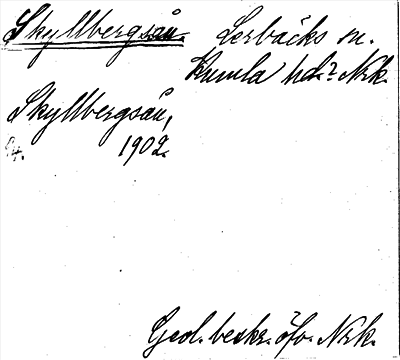 Skyllbergsån. Lerbäcks sn.
Kumla hd? Nrk.
Skyllbergsån,
1902.
Geol. beskr. öfv. Nrk.